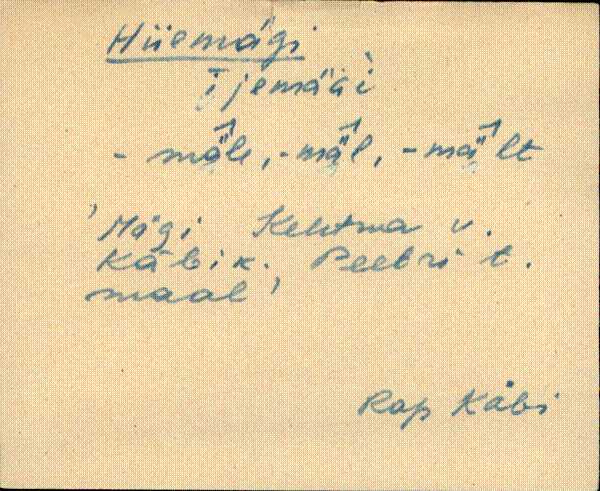 Hiiemägi
ijemäǵi
- mä̂le, -mä̂l, -mä̂lt
'Mägi Kehtna v.
Käbik. Peetri t.
maal'
Rap Käbi